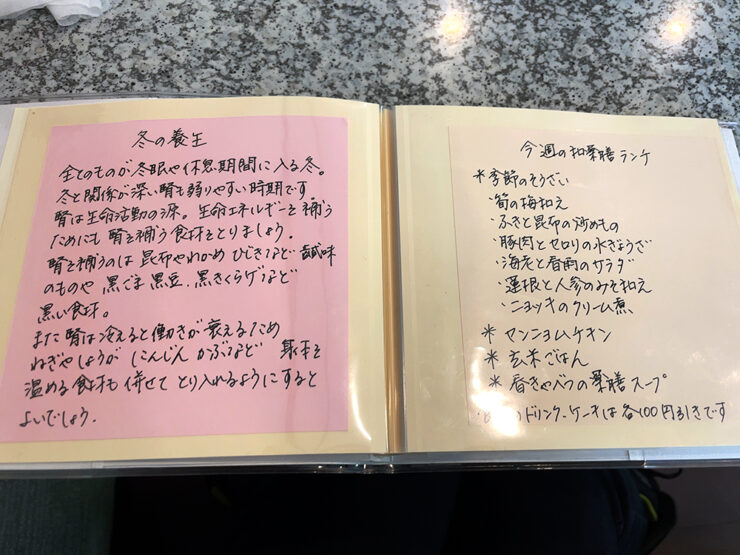 冬の養生
全てのものが冬眠や休息期間に入る冬。
冬と関係が深い腎も弱りやすい時期です。
腎は生命活動の源。生命エネルギーを補う
ためにも腎を補う食材をとりましょう。
腎を補うのは昆布やわかめ ひじきなど 鹹味
のものや 黒ごま 黒豆、黒きくらげなど
黒い食材。
また 腎は冷えると働きが衰えるため
ねぎやしょうが にんじん かぶなど 身体を
温める食材も併せて とり入れるようにすると
よいでしょう。
今週の和薬膳ランチ
*季節のそうざい
・筍の梅和え
・ふきと昆布の炒めもの
・豚肉とセロリの水ぎょうざ
・海老と春雨のサラダ
・蓮根と人参のみそ和え
・ニョッキのクリーム煮
* ヤンニョムチキン
* 玄米ごはん
* 春キャベツの薬膳スープ
のドリンク、ケーキは各100円引きです